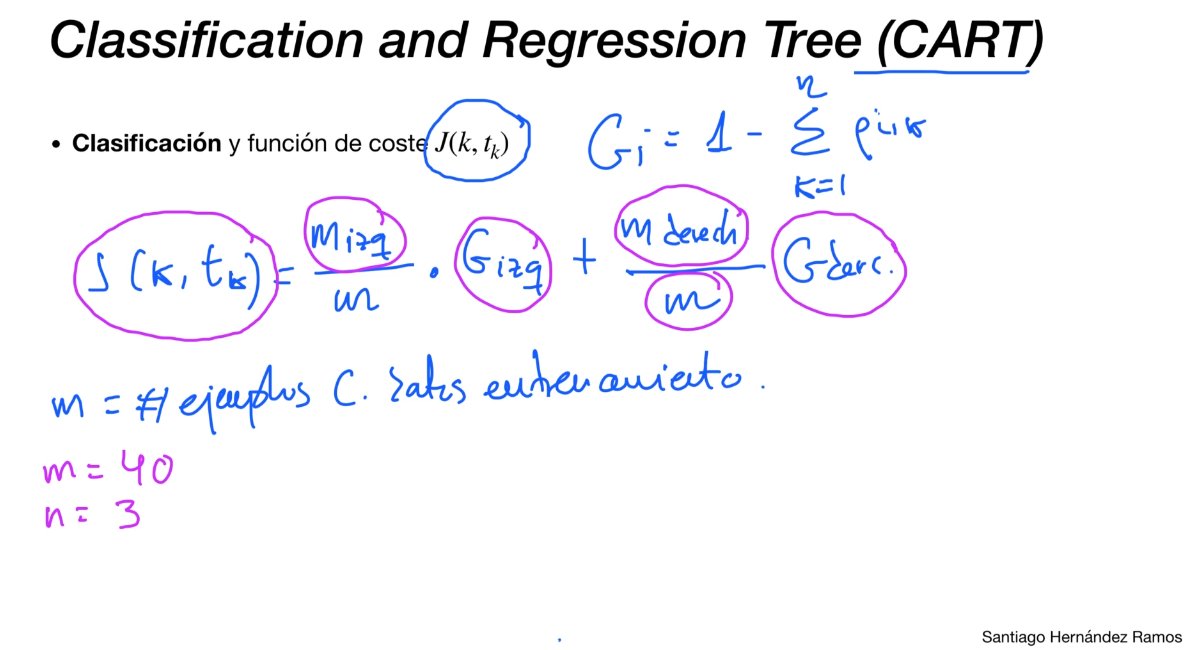 Classification and Regression Tree (CART)
• Clasificación y función de coste J(k, t_k)
G_i = 1 - Σ_{k=1}^{n} p_{i,k}
J(k, t_k) = m izq / m · G izq + m derech / m G derc.
m = # ejemplos C. datos entrenamiento.
m = 40
n = 3
Santiago Hernández Ramos